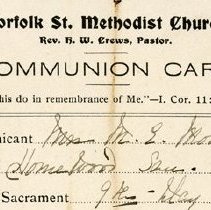 orfolk St. Methodist Churc
Rev. H. W. Crews, Pastor.
OMMUNION CAR
his do in remembrance of Me."—I. Cor. 11:
nicant Mrs M. E. Mo
Homewood
Sacrament 9th Day